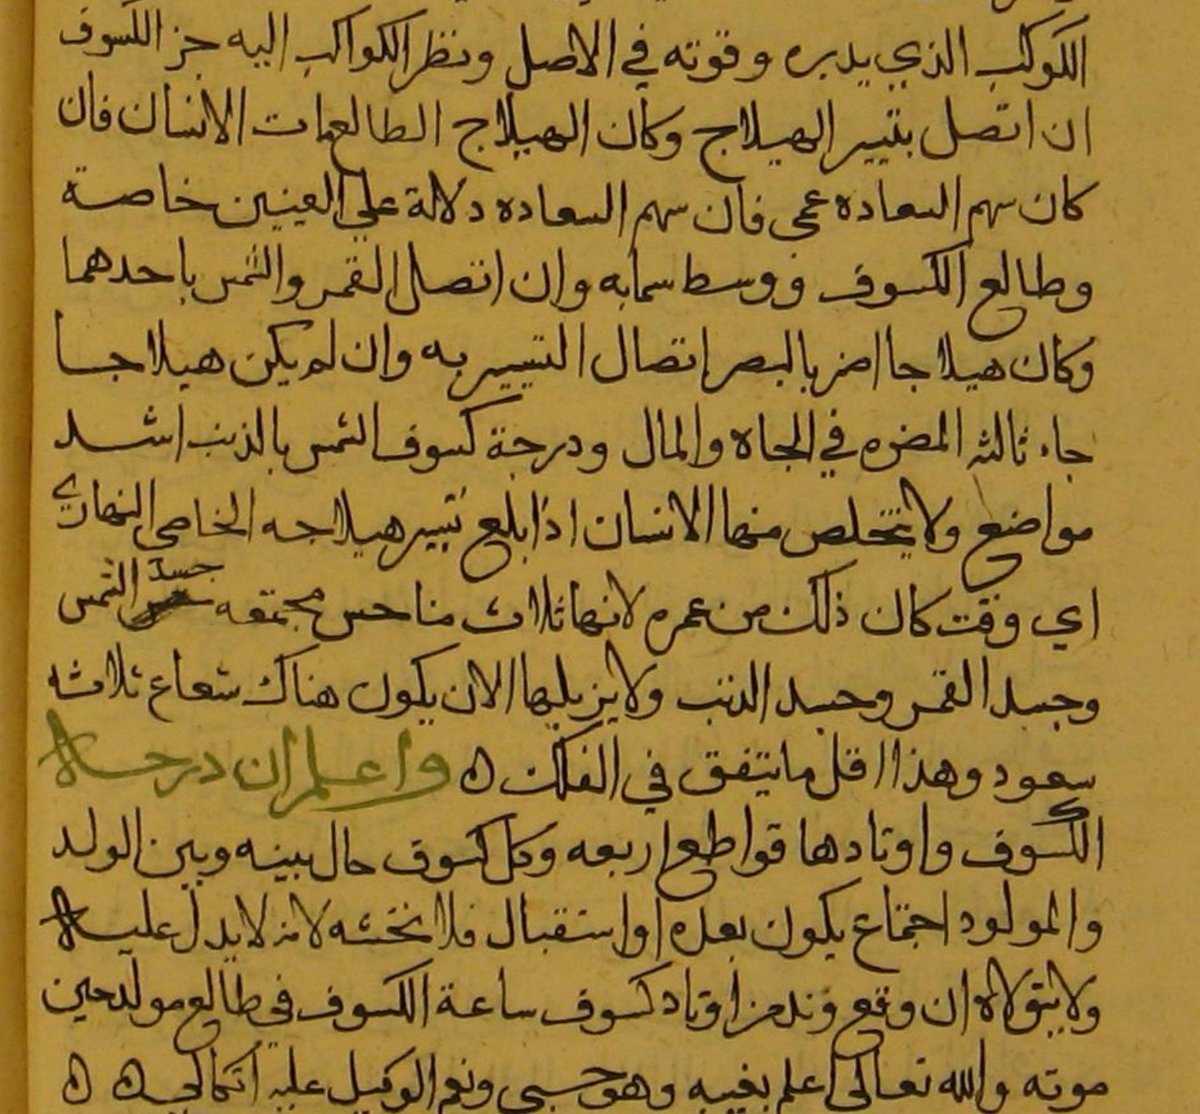 الكوكب الذي يدبره وقوته في الاصل ونظر الكواكب اليه جز الكسوف
ان اتصل بتسيير الهيلاج وكان الهيلاج الطالع مات الانسان فان
كان سهم السعاده عمي فان سهم السعاده دلالة علي العينين خاصة
وطالع الكسوف ووسط سمايه وان اتصل القمر والشمس باحدهما
وكان هيلاجا اضر بالبصر اتصال التسيير به وان لم يكن هيلاجا
جاء ثالثه المضره في الجاه والمال ودرجة كسوف الشمس بالذنب اشد
مواضع ولا يتخلص منها الانسان اذا بلغ تسيير هيلاجه الخاصي النهاري
اي وقت كان ذلك من عمره لانها ثلاث مناحس مجتمعه جسد الشمس
وجسد القمر وجسد الذنب ولا يزيلها الا ان يكون هناك شعاع ثلاثه
سعود وهذا اقل ما يتفق في الفلك ه واعلم ان درجاه
الكسوف واوتادها قواطع اربعه وكل كسوف حال بينه وبين الولد
والمولود اجتماع يكون بعده او استقبال فلا تخشه لانه لا يدل عليه
ولا يتولاه ان وقع وتد من اوتاد كسوف ساعة الكسوف في طالع مولد حين
موته والله تعالى اعلم بغيبه وهو حسبي ونعم الوكيل عليه اتكالي ه ه